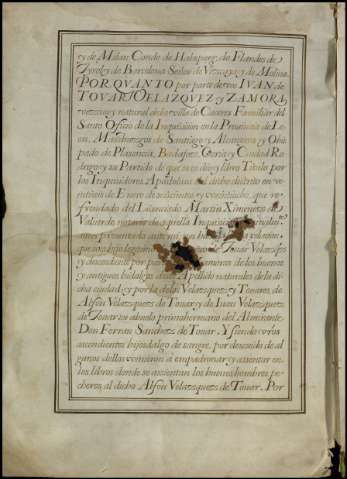 y de Milan, Conde de Habspurg, de Flandes, de
Tyrol, y de Barcelona, Señor de Vizcaya, y de Molina.
POR QVANTO por parte de vos IVAN DE
TOVAR VELAZQVEZ y ZAMORA,
vezino y natural de la villa de Caceres Familiar del
Santo Oficio de la Inquisicion en la Prouincia de Le
on, Maestrazgos de Santiago, y Alcantara, y Obis
pado de Plasencia, Badajoz, Coria, y Ciudad Ro
drigo, y su Partido de que se os dio y libro Titulo por
los Inquisidores Apostolicos del dicho distrito en ve
de Enero de seiscientos y veintiocho, que re
frendado del Licenciado Martin Ximenez de
notario de aquella
presentado ante
que sois hijo legitimo de Touar Velazquez
y descendiente por de los buenos
y antiguos hidalgos Apellido naturales de la di
cha ciudad, y por la de los Velazquez y Touares, de
Alfon Velazquez de Touar, y de Iuan Velazquez
de Touar su abuelo primo hermano del Almirante
Don Fernan Sanchez de Touar. Y siendo vros
ascendientes hijosdalgo de sangre, por descuido de al
gunos dellos vinieron a empadronar, y assentar en
los libros donde se assientan los buenos hombres pe
cheros, al dicho Alfon Velazquez de Touar. Por